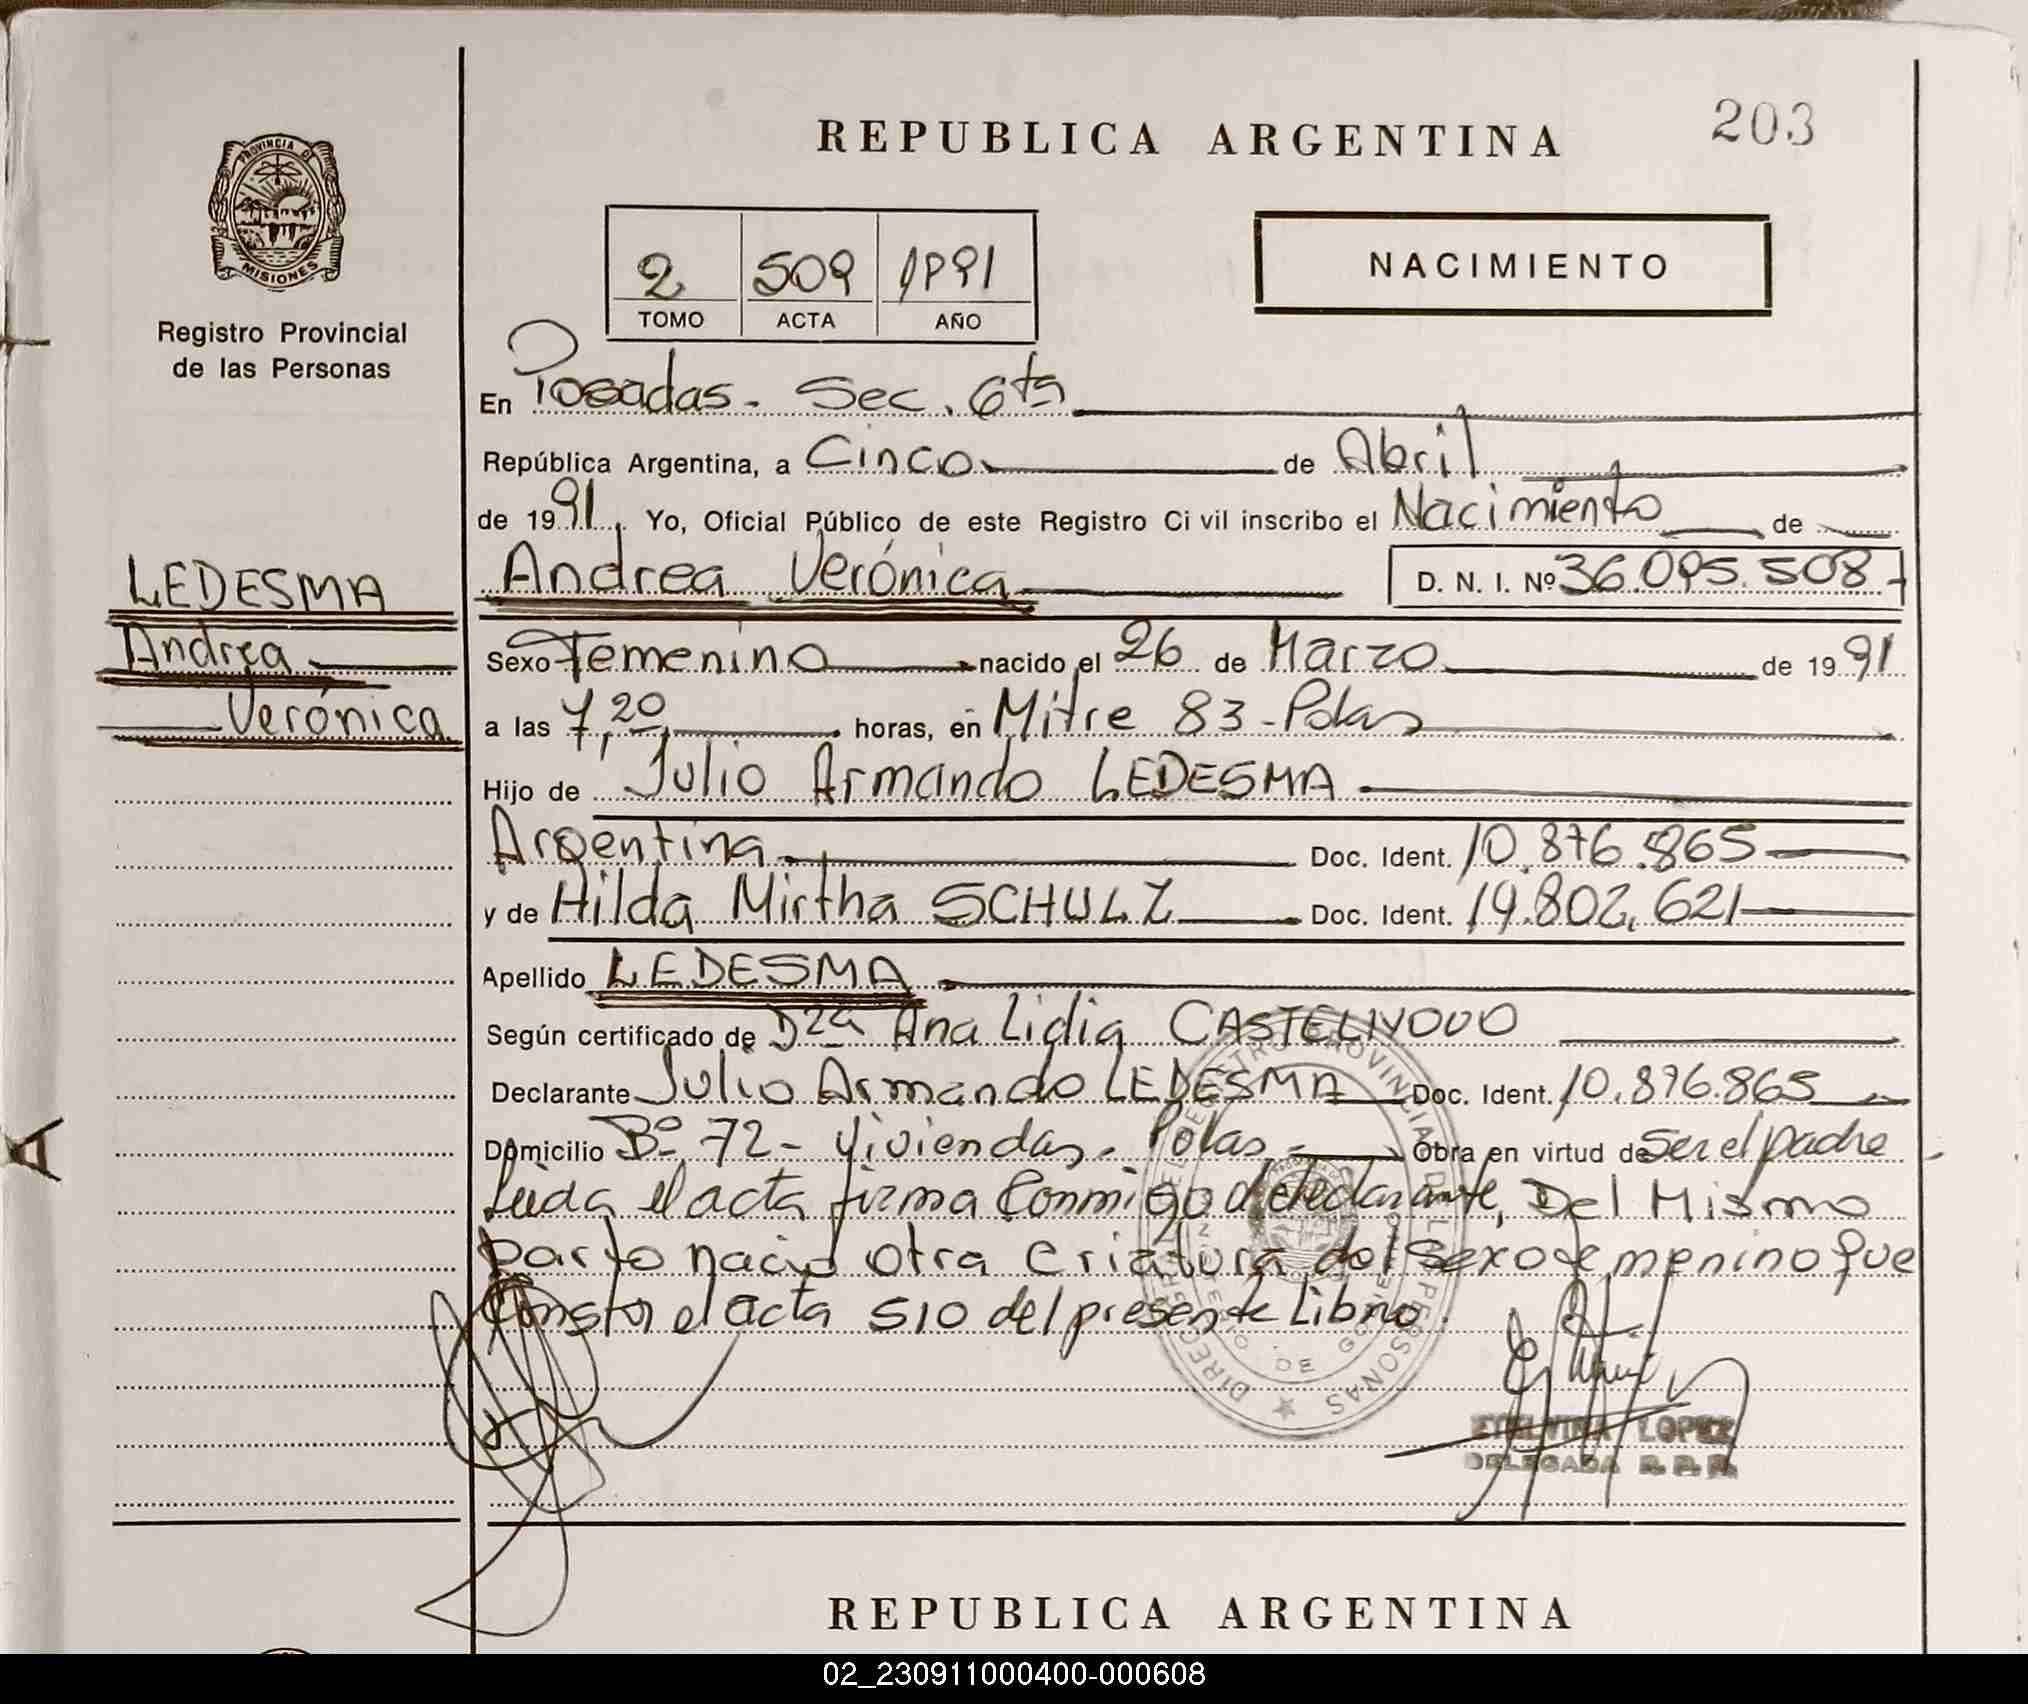 REPUBLICA ARGENTINA
203
PROVINCIA DE
MISIONES
Registro Provincial
de las Personas
2 509 1991
TOMO ACTA AÑO
NACIMIENTO
En Posadas. Sec. 6ta
República Argentina, a Cinco de Abril
de 1991. Yo, Oficial Público de este Registro Ci vil inscribo el Nacimiento de
LEDESMA
Andrea
Verónica
Andrea Verónica D. N. I. Nº 36.095.508
Sexo Femenino nacido el 26 de Marzo de 1991
a las 7,20 horas, en Mitre 83 - Pdas
Hijo de Julio Armando LEDESMA
Argentina Doc. Ident. 10.876.865
y de Hilda Mirtha SCHULZ Doc. Ident. 19.802.621
Apellido LEDESMA
Según certificado de Dra Ana Lidia
Declarante Julio Armando LEDESMA Doc. Ident. 10.876.865
Domicilio Bº 72 - Viviendas. Pdas Obra en virtud de ser el padre
Leida el acta firma Conmigo el declarante, Del Mismo
parto nacio otra Criatura del Sexo femenino que
Consta el acta 510 del presente Libro.
ETELVINA LOPEZ
DELEGADA R. P. P.
REPUBLICA ARGENTINA
02_230911000400-000608